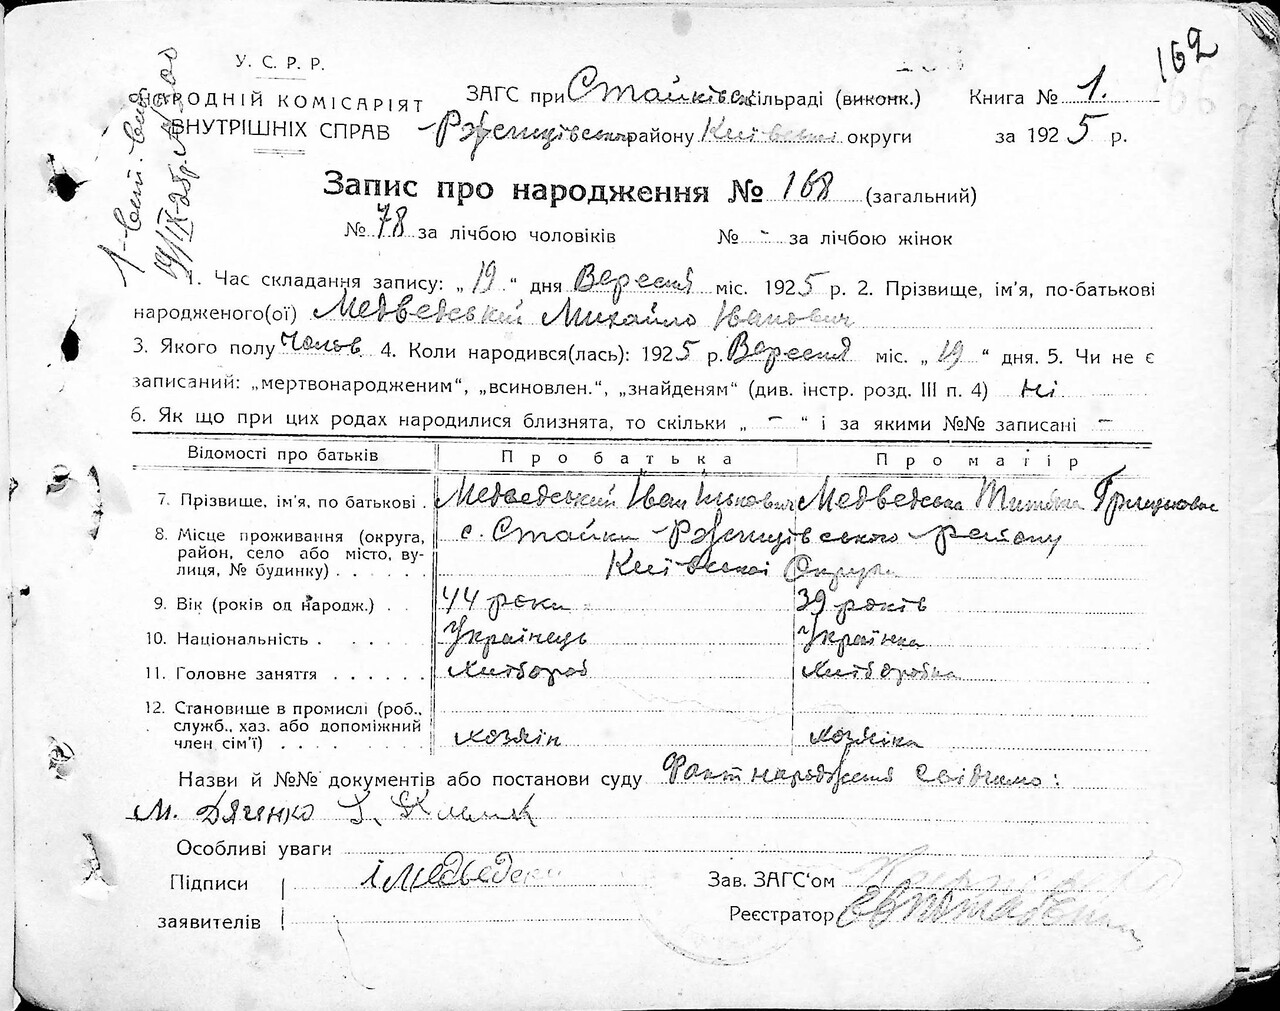 162
У. С. Р. Р.
НАРОДНІЙ КОМІСАРІЯТ
ВНУТРІШНІХ СПРАВ
ЗАГС при Стайківск сільраді (виконк.) Книга № 1.
Ржищівськ району Київської округи за 1925 р.
Запис про народження № 168 (загальний)
№ 78 за лічбою чоловіків № - за лічбою жінок
1. Час складання запису: „19“ дня Вересня міс. 1925 р. 2. Прізвище, ім'я, по-батькові
народженого(ої) Медведський Михайло Іванович
3. Якого полу Чолов 4. Коли народився(лась): 1925 р. Вересня міс. „19“ дня. 5. Чи не є
записаний: „мертвонародженим“, „всиновлен.“, „знайденям“ (див. інстр. розд. III п. 4) Ні
6. Як що при цих родах народилися близнята, то скільки „ - “ і за якими №№ записані -
Відомості про батьків Про батька Про матір
7. Прізвище, ім'я, по батькові . Медведський Іван Медведська Грицьковна
8. Місце проживання (округа, район, село або місто, вулиця, № будинку) . . . . . . с. Стайки Ржищівського району
Київської Округи
9. Вік (років од народж.) . . 44 роки 39 років
10. Національність . . . . . Українець Українка
11. Головне заняття . . . . . . Хлібороб Хліборобка
12. Становище в промислі (роб., служб., хаз. або допоміжний член сім'ї) . . . . . . хозяїн хозяїка
Назви й №№ документів або постанови суду Факт народження свідчимо:
М. Дяченко
Особливі уваги
Підписи І Медведськ Зав. ЗАГС'ом
заявителів Реєстратор